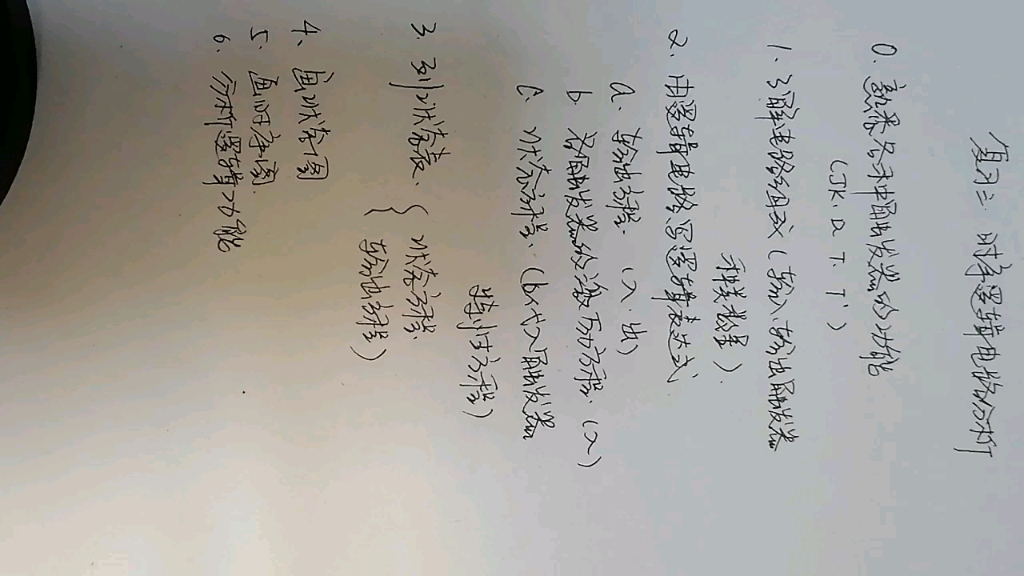 复习二、时序逻辑电路分析
0. 熟悉各种触发器的功能
(JK. D. T. T')
1. 了解电路组成(输入、输出触发器
种类数量).
2. 用逻辑电路写逻辑表达式
a. 输出方程. (入.出)
b. 各触发器的激励方程. (入)
c. 状态方程. (b代入触发器
特性方程)
3. 列状态表. { 状态方程.
输出方程)
4. 画状态图
5. 画时序图
6. 分析逻辑功能